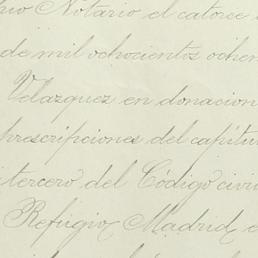 Notario el catorce
de mil ochocientos ochen
Velazquez en donacion
prescripciones del capitu
tercero del Código civi
Refugio Madrid e